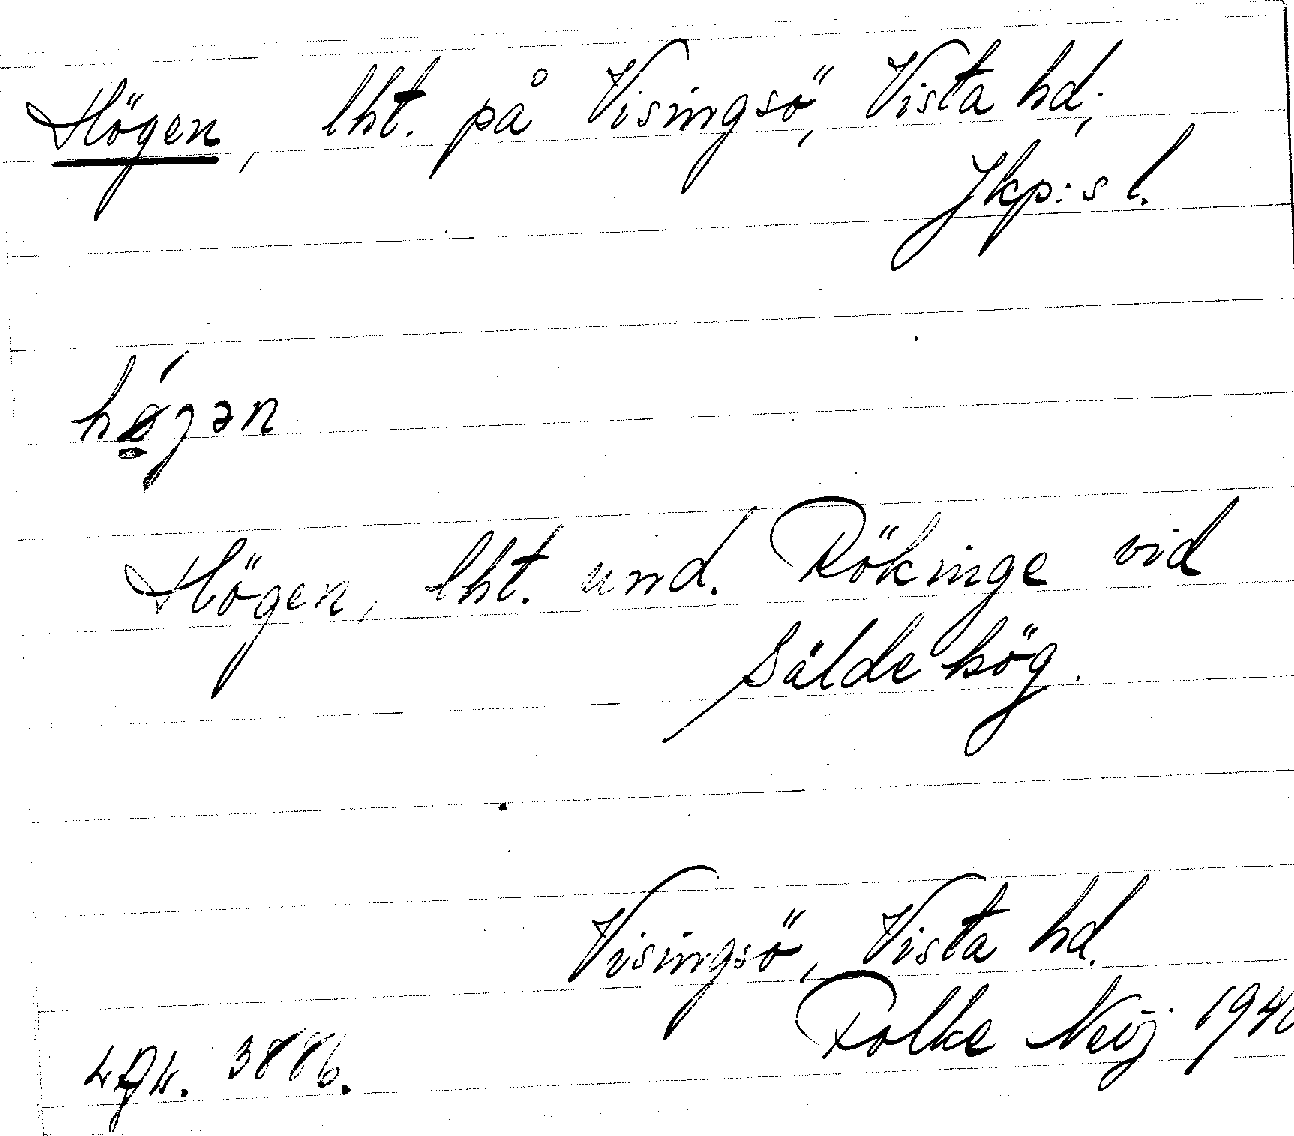 Högen, lht. på Visingsö, Vista hd,
Jkp:s l.
hø̀gən
Högen, lht. und. Rökinge vid
Sälde hög.
Visingsö, Vista hd.
Folke Neij 1940
3886.